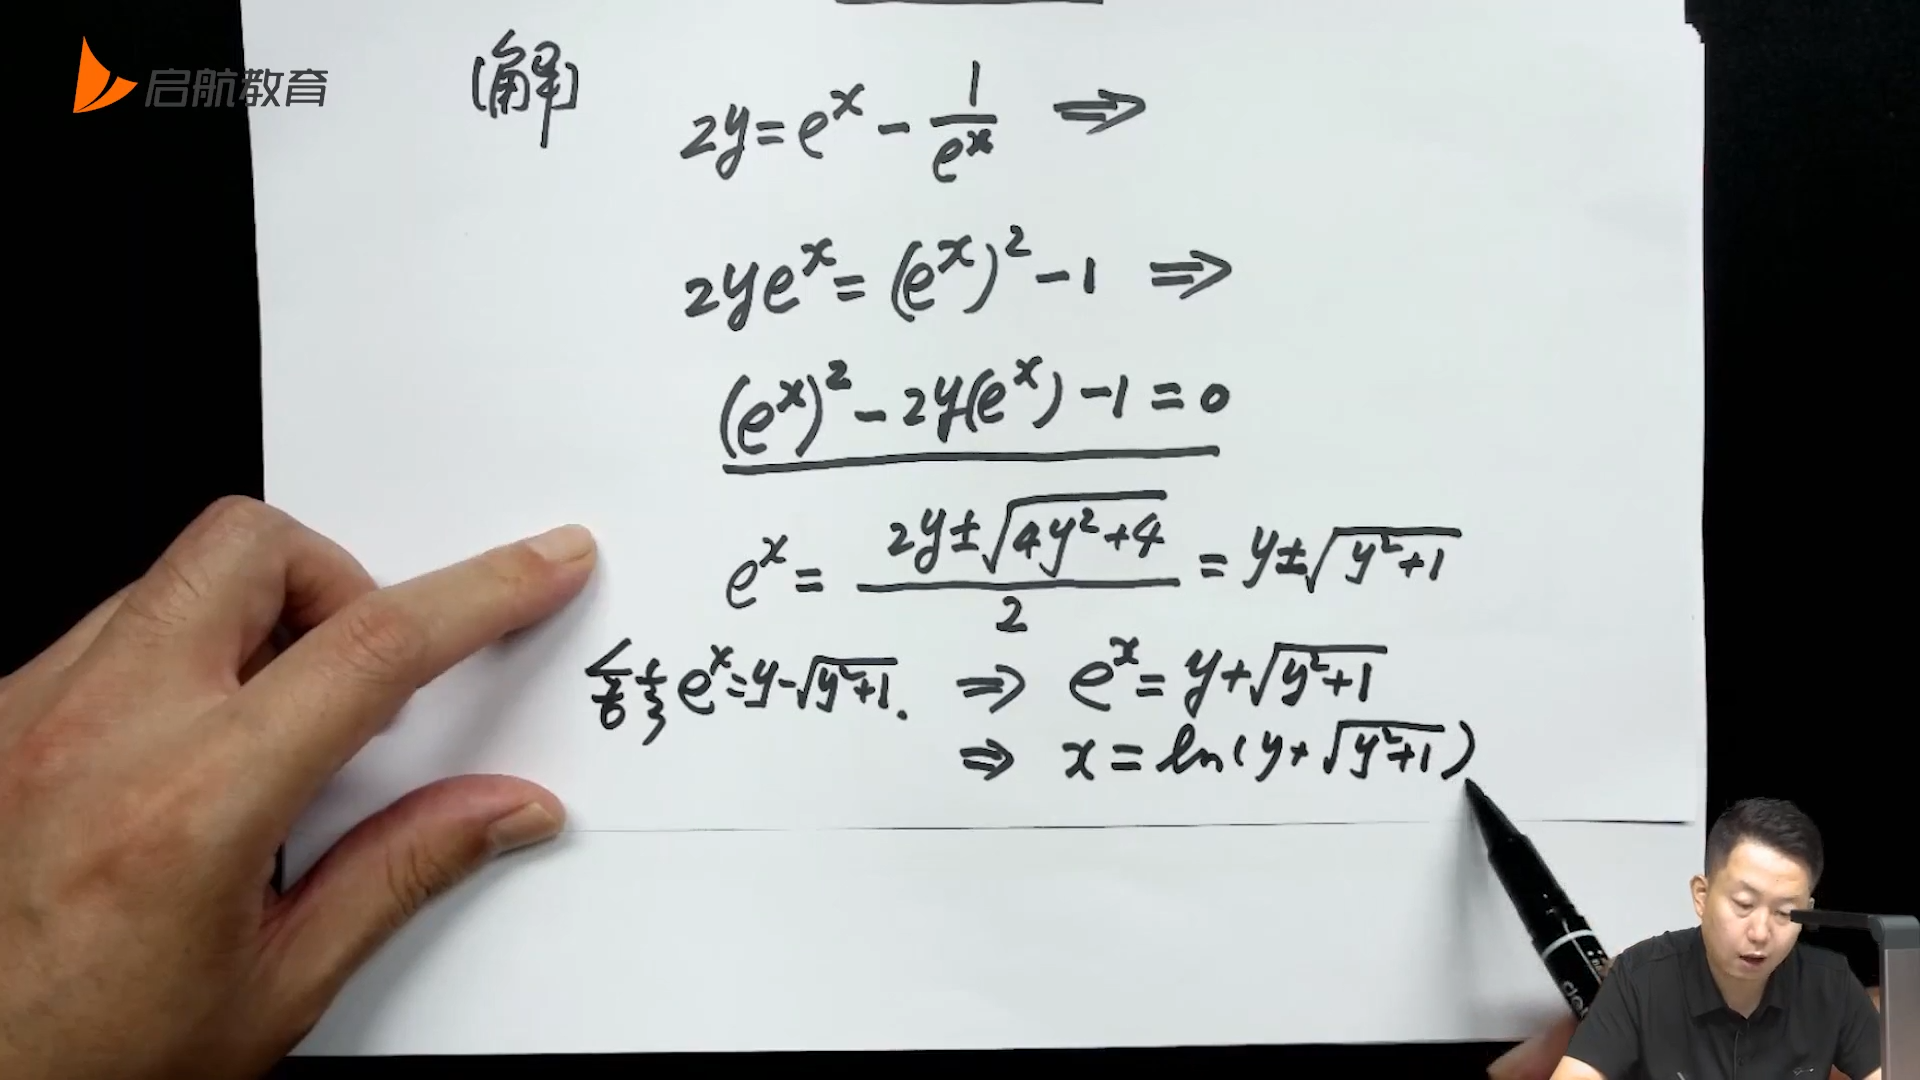 启航教育
[解]
2y = e^x - 1/e^x ⇒
2ye^x = (e^x)^2 - 1 ⇒
(e^x)^2 - 2y(e^x) - 1 = 0
e^x = (2y ± √(4y^2+4))/2 = y ± √(y^2+1)
舍掉 e^x = y - √(y^2+1). ⇒ e^x = y + √(y^2+1)
⇒ x = ln(y + √(y^2+1))